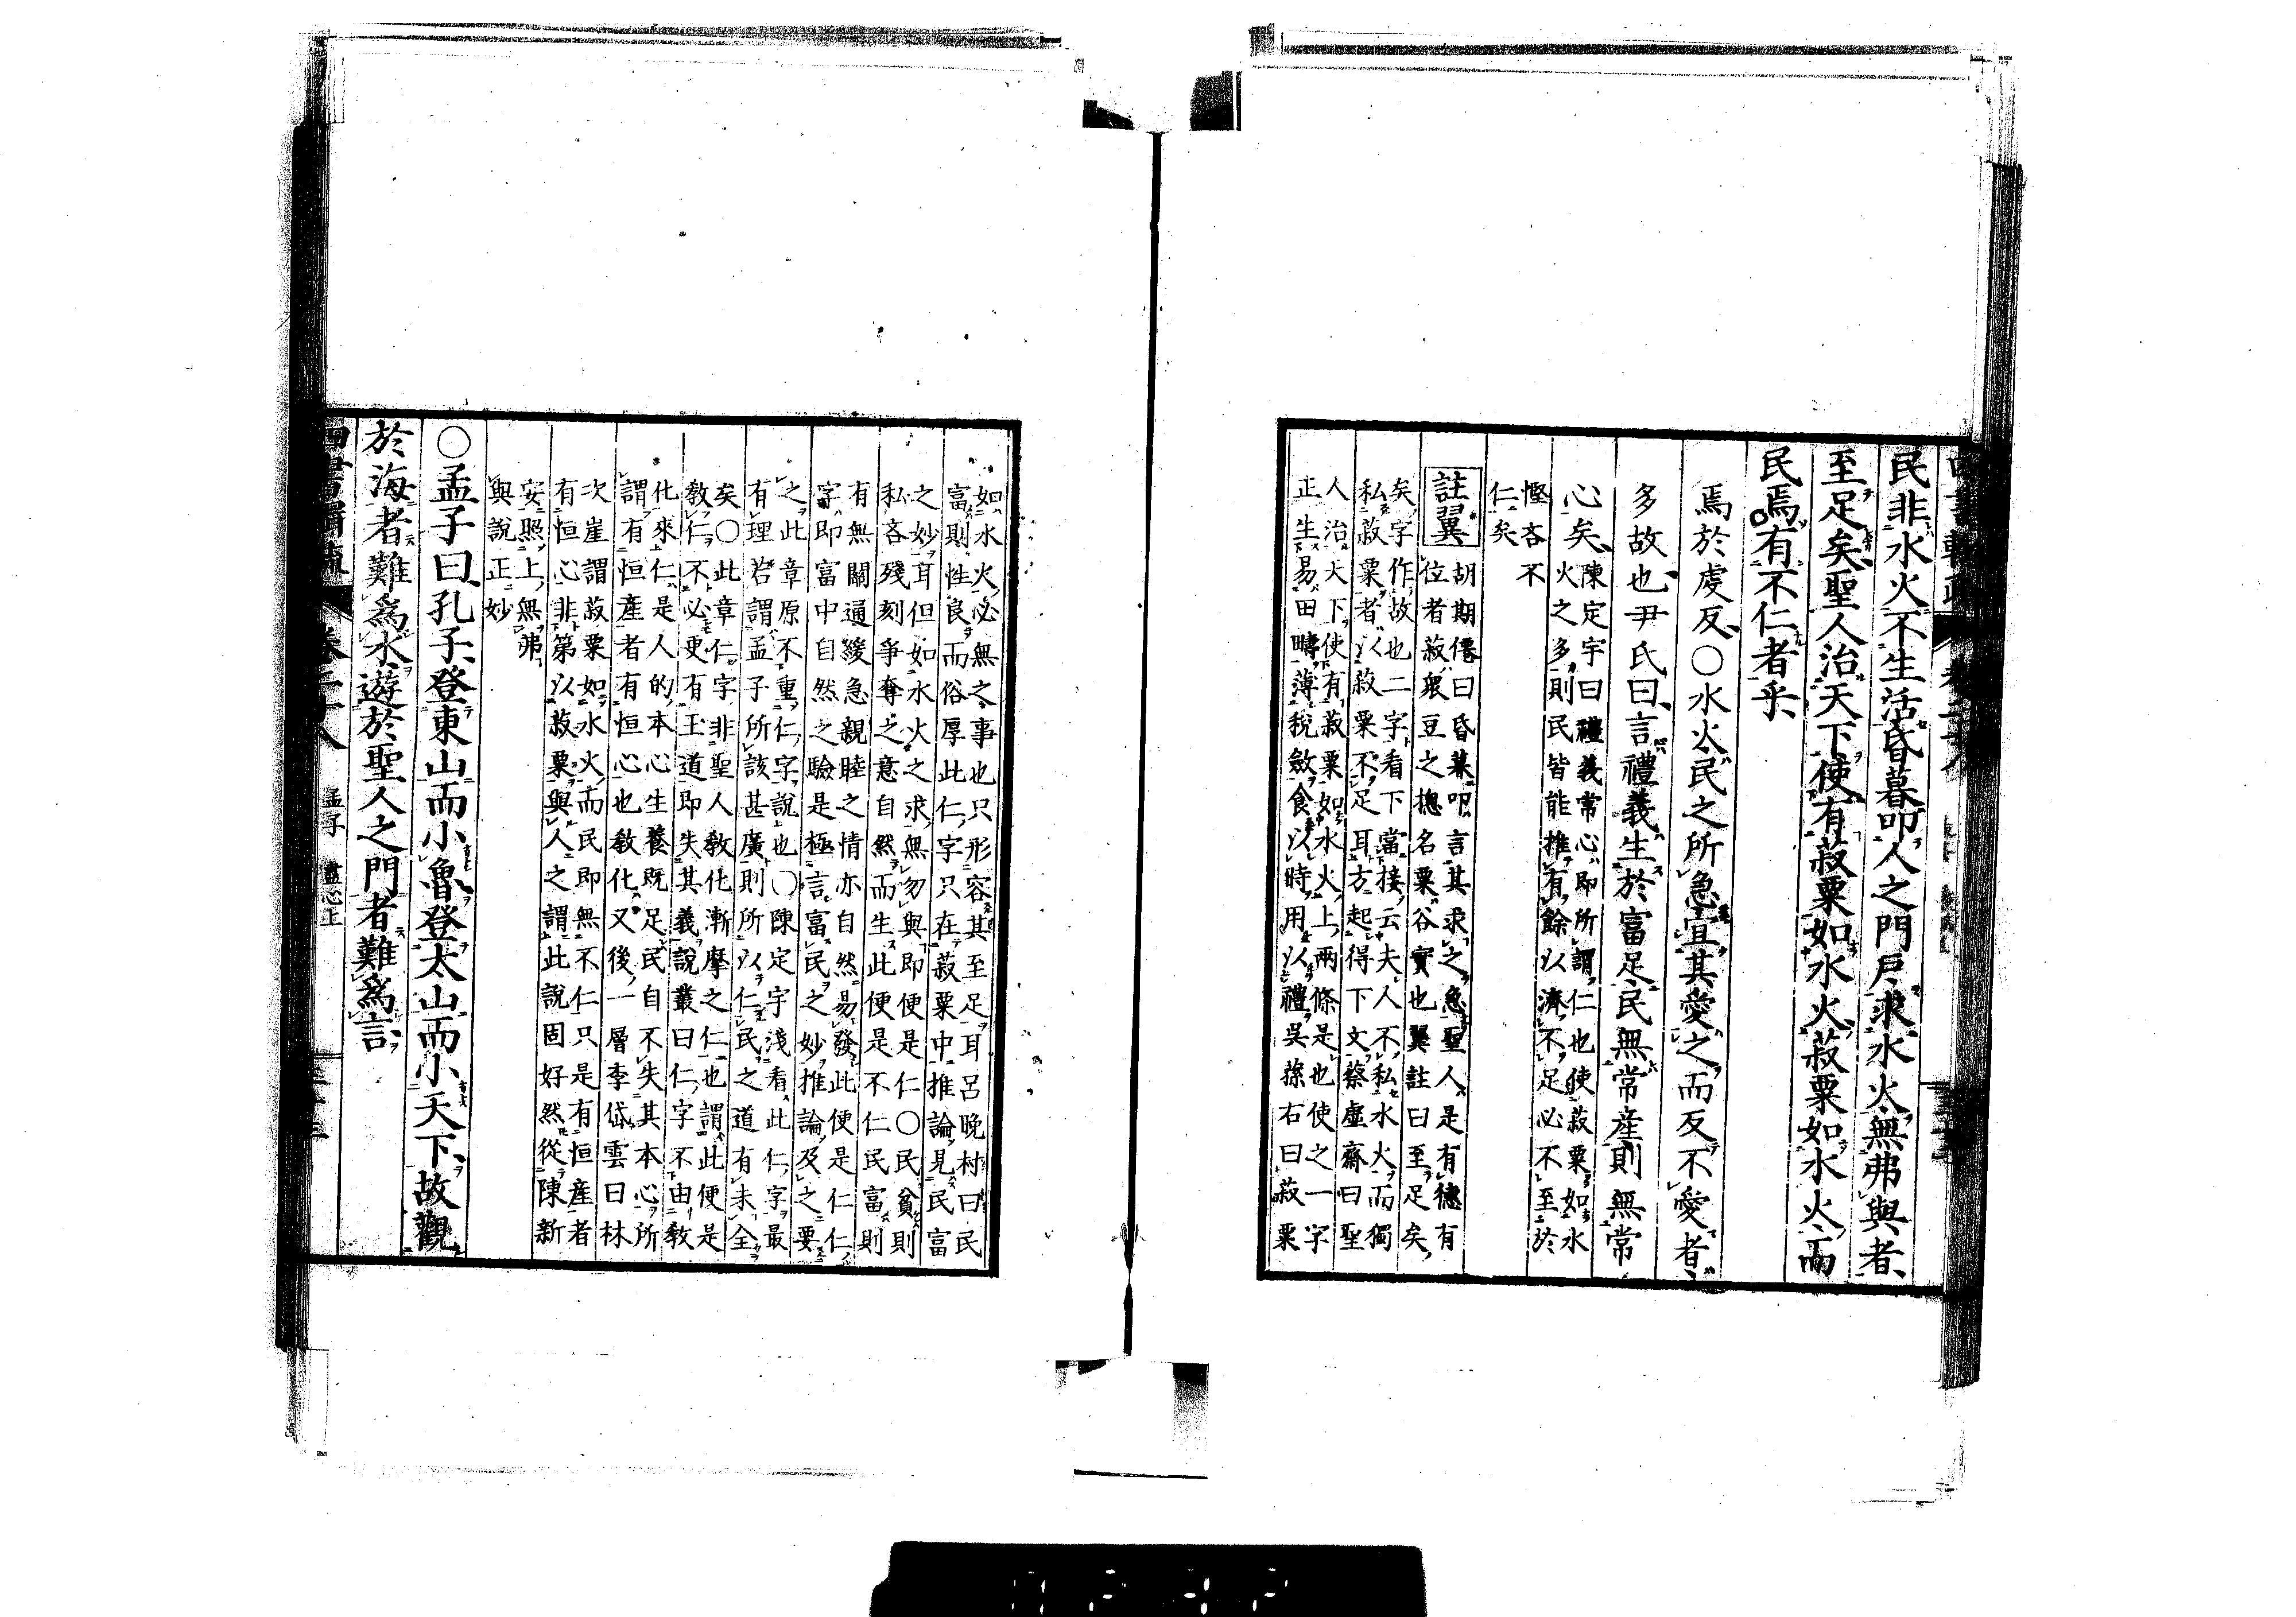 民非水火不生活昏暮叩人之門戶求水火無弗與者
至足矣聖人治天下使有菽粟如水火菽粟如水火而
民焉有不仁者乎
焉於虔反〇水火民之所急宜其愛之而反不愛者
多故也尹氏曰言禮義生於富足民無常産則無常
心矣
陳定宇曰禮義常心即所謂仁也使菽粟如水
火之多則民皆能推有餘以濟不足必不至於
慳吝不
仁矣
註翼
胡期僊曰昏暮叩言其求之急聖人是有德有
位者菽衆豆之揔名粟谷實也翼註曰至足矣
矣字作故也二字看下當接云夫人不私水火而獨
私菽粟者以菽粟不足耳方起得下文蔡虛齋曰聖
人治天下使有菽粟如水火上兩條是也使之一字
正生易田疇薄稅斂食以時用以禮吳蓀右曰菽粟
如水火必無之事也只形容其至足耳呂晚村曰民
富則性良而俗厚此仁字只在菽粟中推論見民富
之妙耳但如水火之求無勿與即便是仁〇民貧則
私吝殘刻爭奪之意自然而生此便是不仁民富則
有無關通緩急親睦之情亦自然易發此便是仁仁
字即富中自然之驗是極言富民之妙推論及之要
之此章原不重仁字說也〇陳定宇淺看此仁字最
有理若謂孟子所該甚廣則所以仁民之道有未全
矣〇此章仁字非聖人敎化漸摩之仁也謂此便是
敎仁不必更有王道即失其義說叢曰仁字不由敎
化來仁是人的本心生養既足民自不失其本心所
謂有恒産者有恒心也敎化又後一層李岱雲曰林
次崖謂菽粟如水火而民即無不仁只是有恒産者
有恒心非第以菽粟與人之謂此說固好然從陳新
安照上無弗
與說正妙
〇孟子曰孔子登東山而小魯登太山而小天下故觀
於海者難爲水遊於聖人之門者難爲言
孟子 盡心上